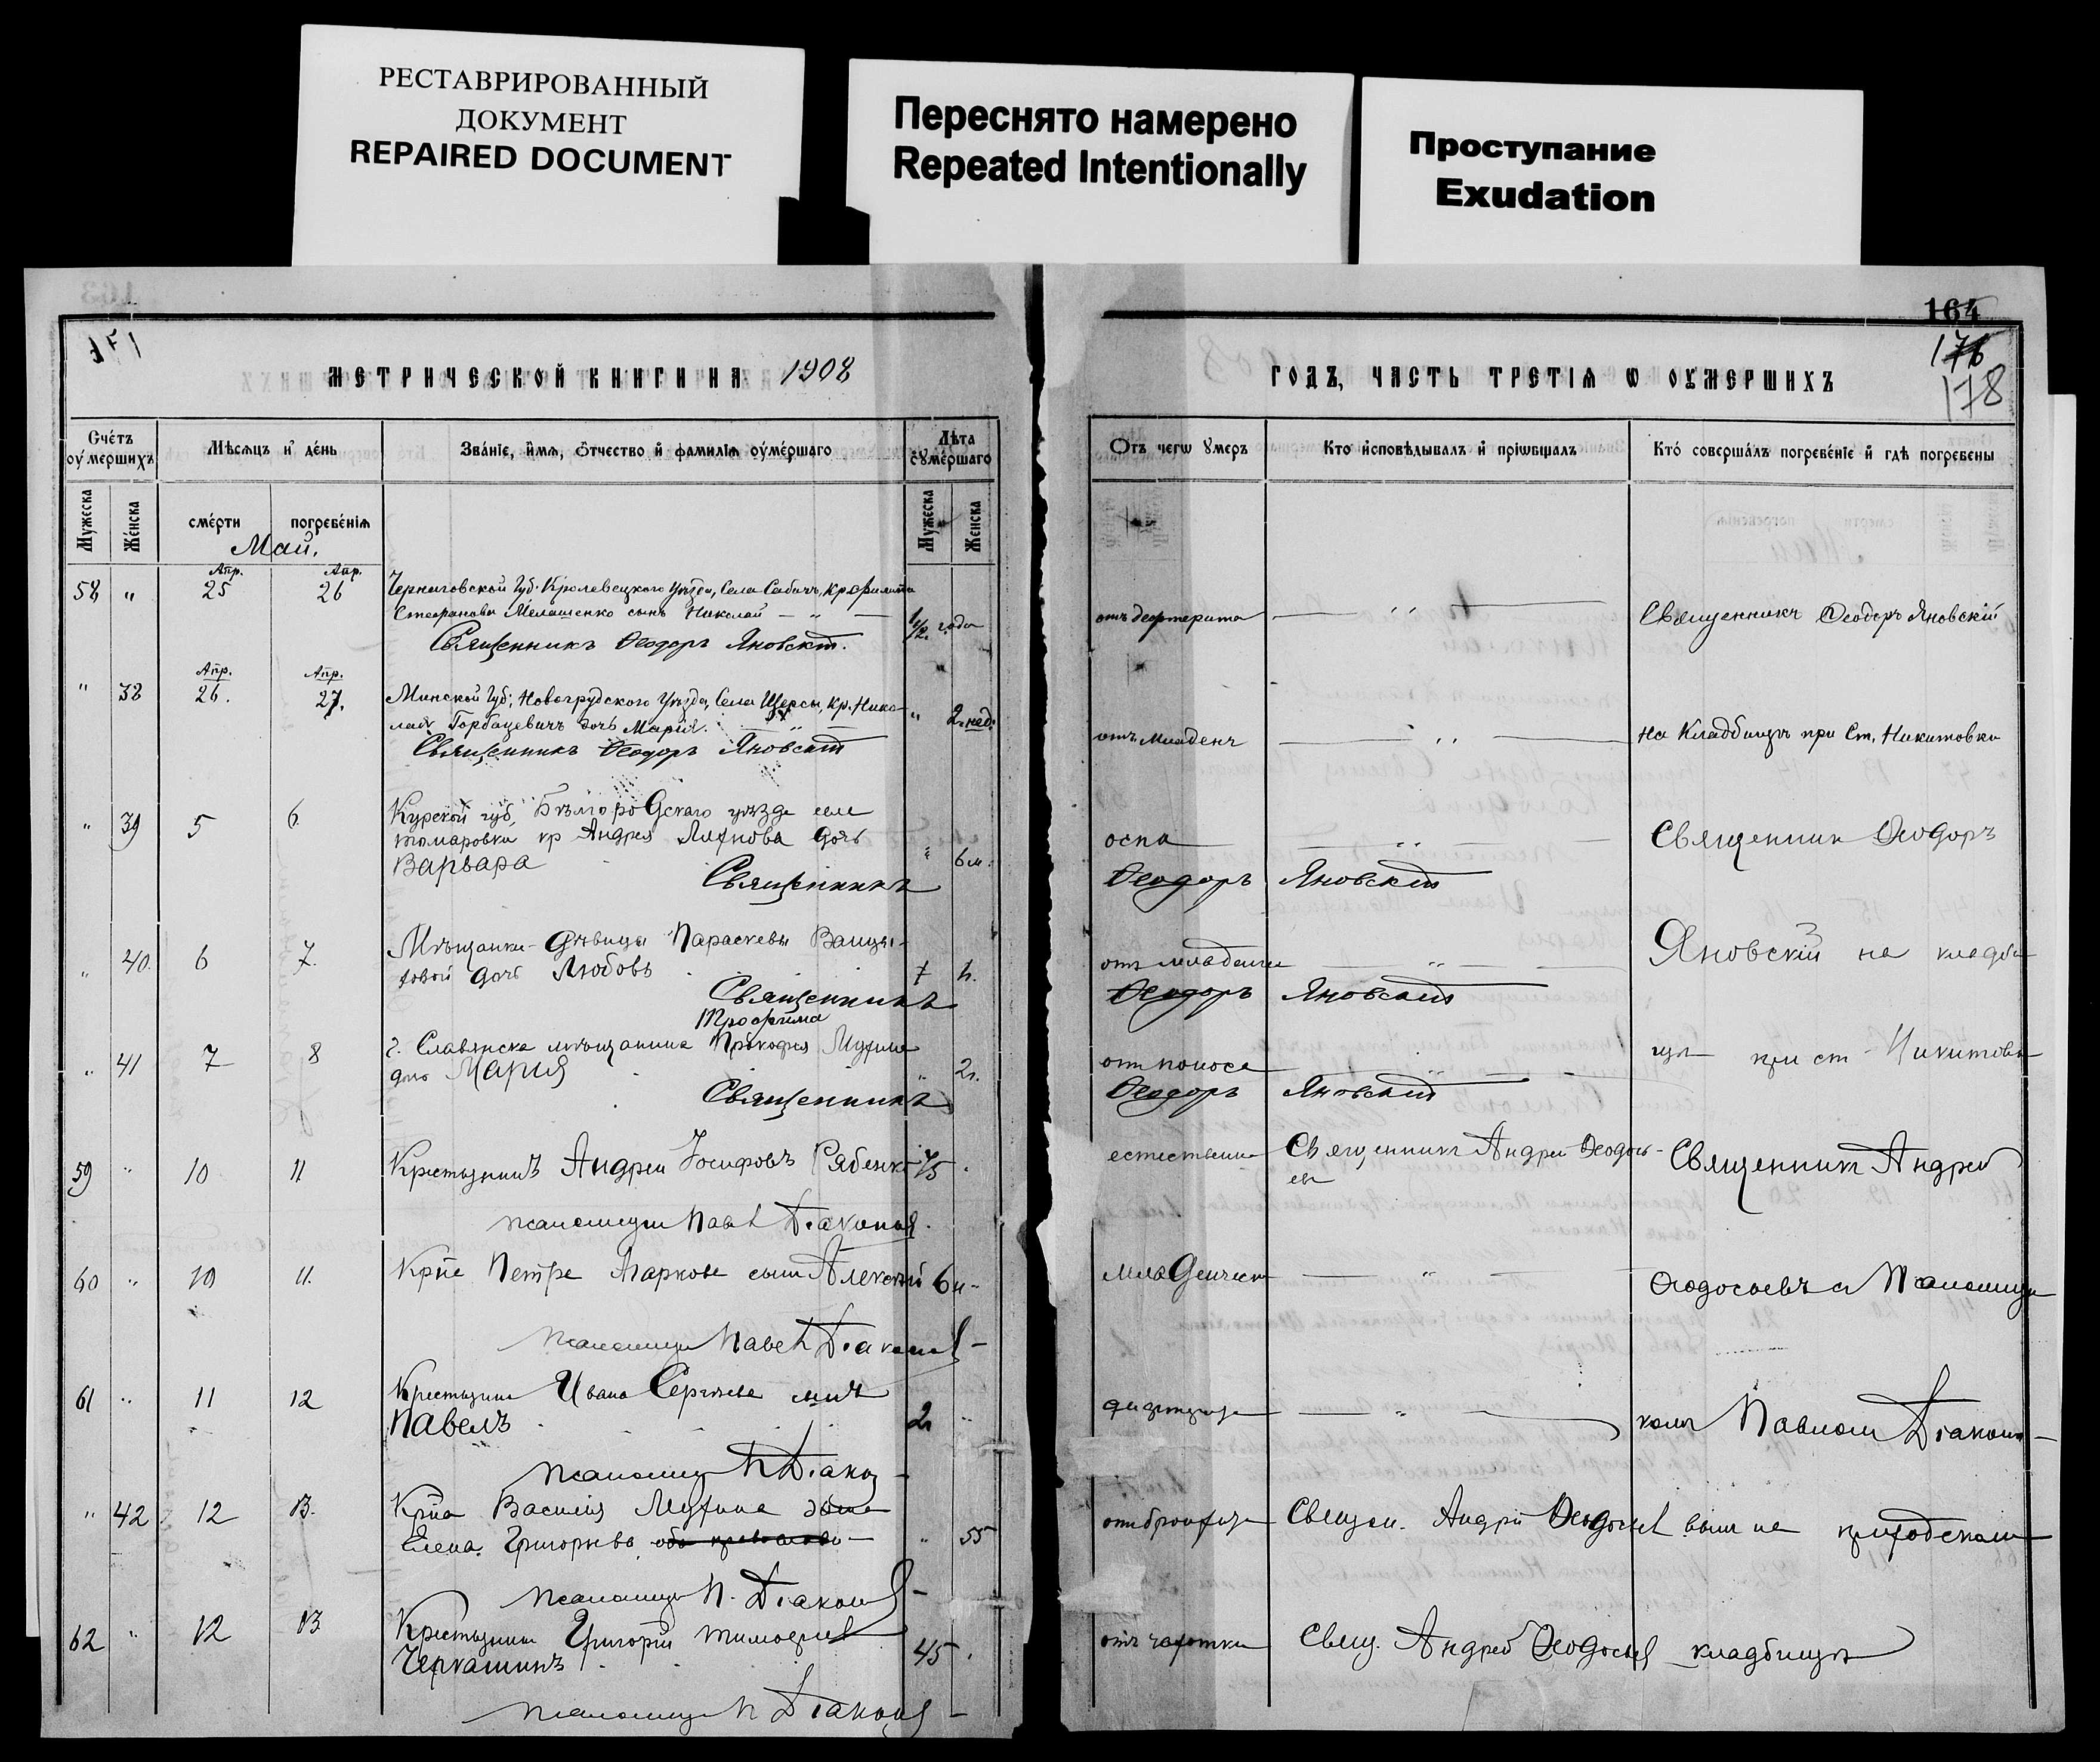 РЕСТАВРИРОВАННЫЙ
ДОКУМЕНТ
REPAIRED DOCUMENT
Переснято намерено
Repeated Intentionally
Проступание
Exudation
171
МЕТРИЧЕСКОЙ КНИГИ НА 1908
Счетъ оумершихъ
Мѣсяцъ и день
Званіе, имя, отчество и фамилія оумершаго
Лѣта оумершаго
Мужеска
Женска
смерти
погребенія
Мужеска
Женска
Май.
Апр. Апр.
58 " 25 26 Черниговской Губ. Кролевецкого Уѣзда, Села Собичъ, кр. Филиппа
Стефанова Мелашенко сынъ Николай — " — 1/2 года
Священникъ Ѳеодоръ Яновскій.
Апр. Апр.
" 38 26. 27. Минской Губ; Новогрудского Уѣзда, Села Щерсы, кр. Нико-
лая Горбацевичъ дочь Марія. " 2 нед.
Священникъ Ѳеодоръ Яновскій
" 39 5 6 Курской губ, Бѣлгородскаго уѣзда села
томаровки кр Андрея дочь
Варвара " 6 м.
Священникъ
" 40. 6 7. Мѣщанки - дѣвицы Параскевы
дочь Любовь
Священникъ
Трофима
" 41 7 8 г. Славянска мѣщанина Прокофия Мухина
дочь Мария " 2 г.
Священникъ
59 " 10 11 Крестьянинъ Андрей Іосифовъ Рябенко 75
псаломщик Павел Діаконов.
60 " 10 11. Крпе Петра Маркова сынъ Алексѣй 6 н
псаломщик Павел Діаконов
61 " 11 12 Крестьянина Ивана Сергѣева сынъ
Павелъ 2 "
псаломщик П Діакон
" 42 12 13. Крпа Василія Мухина жена
Елена Григорьева " 55
псаломщик П. Діаконов
62 " 12 13 Крестьянинъ Григорій Тимофеев
Черкашинъ 45
псаломщик П Діаконов
164
176
178
ГОДЪ, ЧАСТЬ ТРЕТІЯ Ѡ ОУМЕРШИХЪ
Отъ чегѡ умеръ
Кто исповѣдывалъ и пріѡбщалъ
Кто совершалъ погребеніе и гдѣ погребены
отъ дефтерита — " — Священникъ Ѳеодоръ Яновскій
отъ младенч — " — на Кладбищѣ при Ст. Никитовки
оспа — " — Священник Ѳеодоръ
Ѳеодоръ Яновскій
от младенч — " — Яновскій на кладби
Ѳеодоръ Яновскій
от поноса — " — щѣ при ст Никитовка
Ѳеодоръ Яновскій
естественно Священникъ Андрей Ѳеодось-
ев
Священникъ Андрей
младенческ — " — Ѳеодосьевъ с Псаломщи
— " — комъ Павломъ Діаконов
от бронхита Священ. Андрей Ѳеодосьев вым на приходском
отъ чахотки Свящ. Андрей Ѳеодосьев кладбищѣ